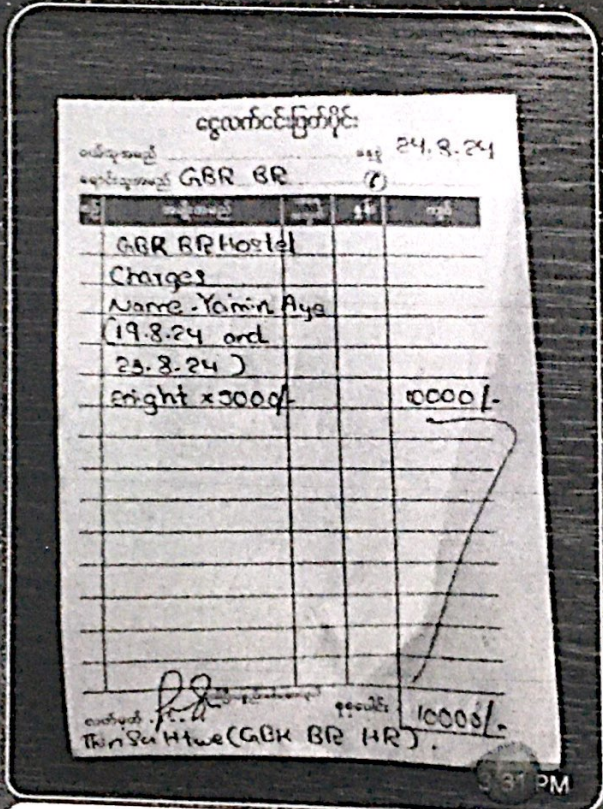 ငွေလက်ငင်းဖြတ်ပိုင်း
ဝယ်သူအမည် နေ့စွဲ 24.8.24
ရောင်းသူအမည် GBR BR
စဉ် အမျိုးအမည် နှုန်း ကျပ်
GBR BR Hostel
Charges
Name-Yamin Aye
(19.8.24 and
23.8.24)
10000/-
လက်မှတ် စုစုပေါင်း 10000/-
Thiri Su Htwe (GBR BR HR).
3:31 PM